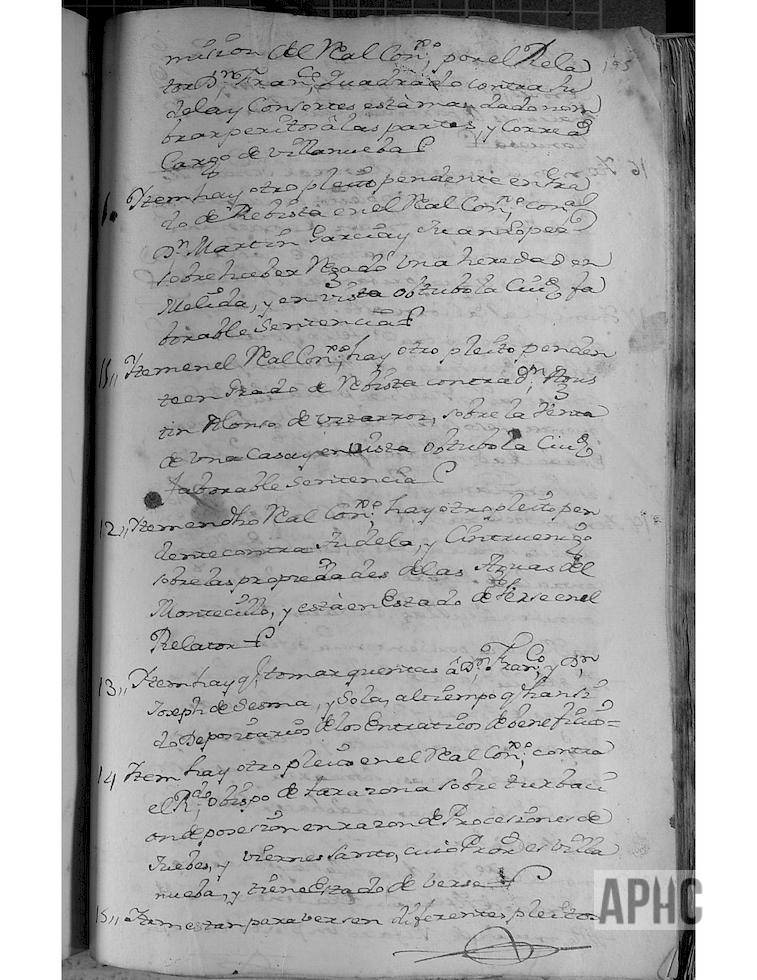 mision del Real Con.º, por el Rela
tor D.n Fran.co Quadrado contra tu
dela y Consortes està mandado nom
brar peritos â las partes, y Corre â
Cargo de Villanueba
Ittem hay otro pleito pendente en Gra
do de Rebista en el Real Con.º, con
D.n Martin Garcia y Juan Lopez
sobre haber una heredad en
Melida, y en vista obtubo la Ciud. fa
borable Sentencia
11,, Ittem en el Real Con.º, hay otro pleito, penden
te en Grado de Rebista contra D.n Agus
tin Alonso de sobre la Venta
de una Casa y en vista obtubo la Ciud.
faborable Sentencia
12,, Ittem en dho Real Con.º hay otro pleito pen
dente contra tudela, y Cintruenigo
sobre las propiedades de las Aguas del
Montecillo, y està en Estado de Verse en el
Relator
13,, Ittem hay q.e tomar quentas â D.n Fran.co y D.n
Joseph de Sesma, y Sola, al tiempo q.
do Depositarios de los Entraticos de beneficio=
14 Ittem hay otro pleito en el Real Con.º, contra
el R.do Obispo de taraxona sobre turbaci
on de posesion en raxon de Procesiones de
Juebes, y viernes Santo, cuio Pror es Villa
nueba, y tiene Estado de berse
15,, Ittem estan para bersen diferentes pleitos
195
16
APHC